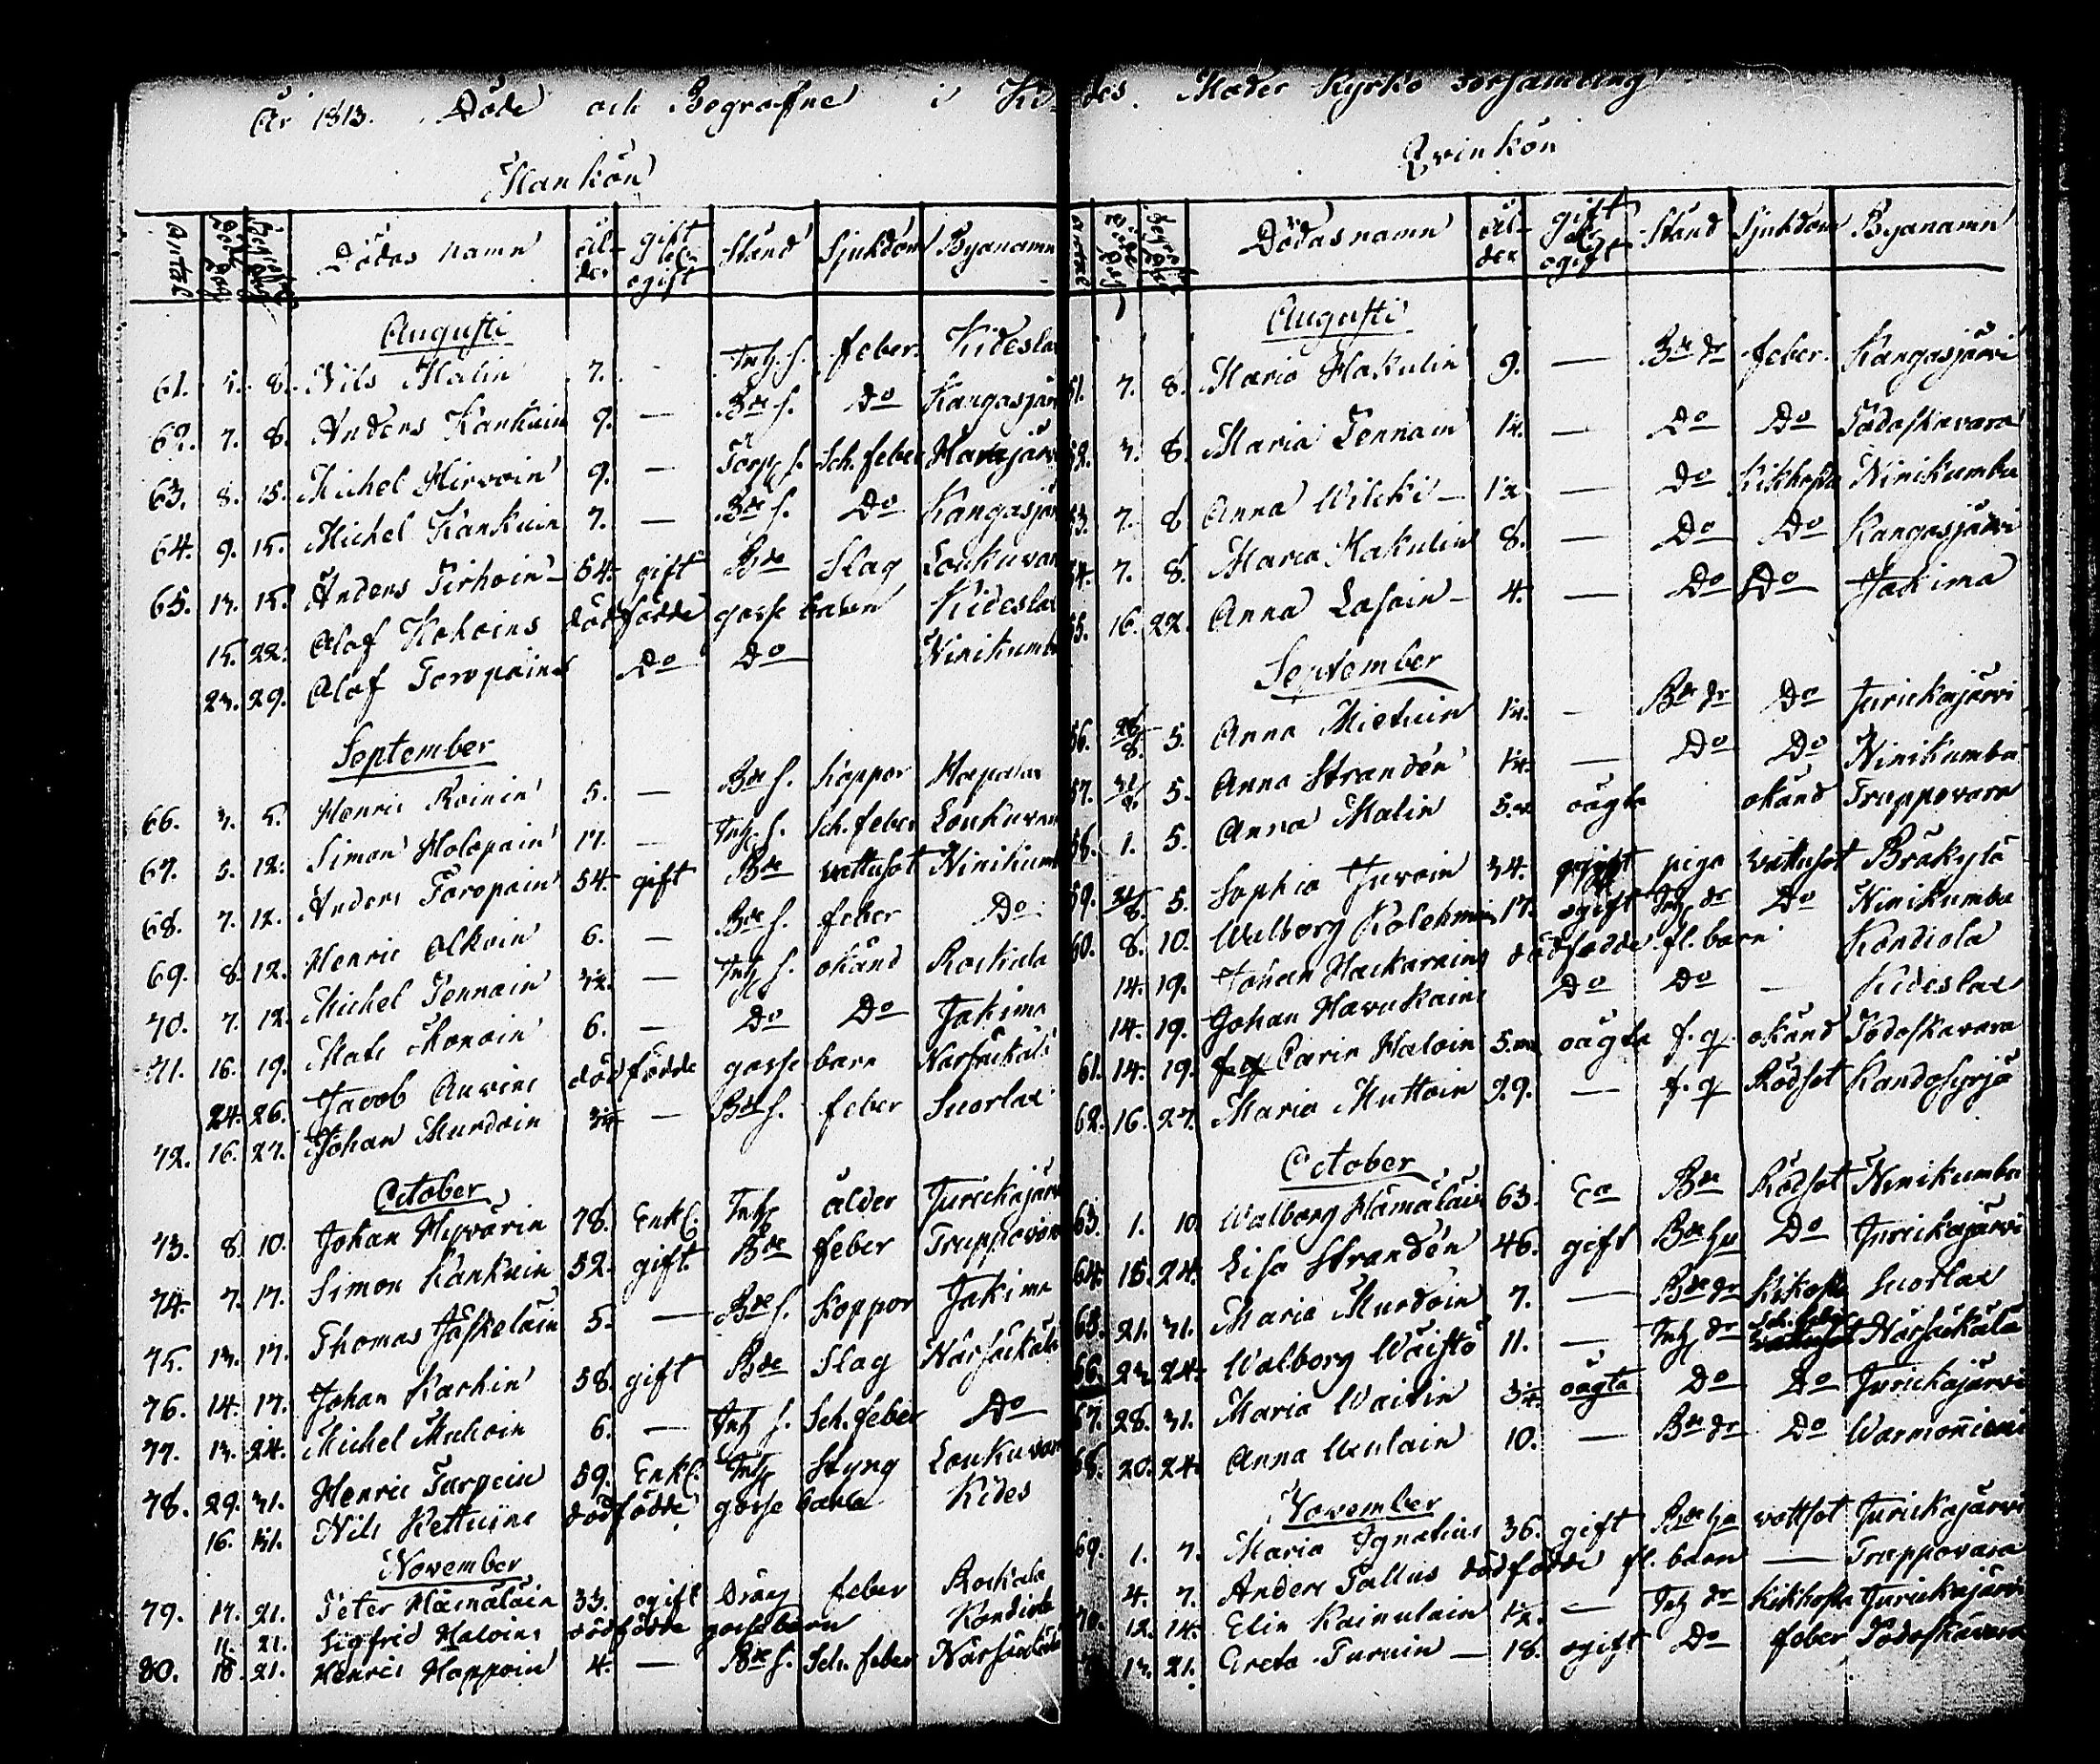 År 1813. Döde och Begrafne i Ki-
Mankön
Antal Död Dag Begrafn. Dag Dödas namn Ål-der gift eller ogift Stånd Sjukdom Byanamn
Augusti
61. 5. 8. Nils Malin 7. - Inh. s. feber. Kideslax
62. 7. 8. Anders Kankuin 9. — Bde s. Do Kangasjär
63. 8. 15. Michel Hirvoin 9. — Torp. s. Sch. feber
64. 9. 15. Michel Kankuin 7. — Bde s. Do Kangasjär
65. 13. 15. Anders Tirhoin 54. gift Bde Slag Loukuvar
15. 22. Olof Kokoins dödfödde gosse barn Kideslax
23. 29. Olof Toropains Do Do Ninikumb
September
66. 3. 5. Henric Roinin 5. — Bde s. Koppor Hapalax
67. 5. 12. Simon Holopain 17. — Inh. s. Sch. feber Loukuvar
68. 7. 12. Anders Toropain 54. gift Bde wattusot Ninikumb
69. 8. 12. Henric Olkoin 6. — Bde s. feber Do
70. 7. 12. Michel Tennain — Inh. s. okänd Rockala
71. 16. 19. Mats Monoin 6. — Do Do Jakima
24. 26. Jacob Auvins dödfödde gosse barn Närsäckälä
72. 16. 27. Johan Murdoin — Bde s. feber Suorlax
October
73. 8. 10. Johan Hyvärin 78. Enkl. Inh. ålder Jurickajärv
74. 7. 17. Simon Kankuin 52. gift. Bde feber Truppovar
75. 13. 17. Thomas Jäskeläin 5. — Bde s. Koppor Jakima
76. 14. 17. Johan Karhin 58. gift Bde Slag Närsäckälä
77. 13. 24. Michel Muhoin 6. — Inh. s. Sch. feber Do
78. 29. 31. Henric Turpein 59. Enkl. Inh. Styng Loukuvar
16. 31. Nils Kettuins dödfödde gosse barn Kides
November
79. 17. 21. Peter Hämäläin 33. ogift Dräng feber Rockala
11. 21. Sigfrid Haloins dödfödde gosse barn Kondiola
80. 18. 21. Henric Happoin 4. — Bde s. Sch. feber Närsäckälä
des Moder Kyrko Församling
Qvinkön
Antal Död Dag Begrafn. Dag Dödas namn ål-der gift el. ogift Stånd Sjukdom Byanamn
Augusti
51. 7. 8. Maria Hakulin 9. — Bde dr feber. Kangasjärvi
52. 3. 8. Maria Tennain — Do Do Podoskavara
53. 7. 8. Anna Wilcki — — Do Kikhosta Ninikumbu
54. 7. 8. Maria Hakulin 8. — Do Do Kangasjärvi
55. 16. 22. Anna Lasoin — 4. — Do Do Jakima
September
56. 26/8. 5. Anna Mietuin — Bde dr Do Jurickajärvi
57. 5. Anna Strandén — Do Do Ninikumbu
58. 1. 5. Anna Malin oägta okänd Truppovara
59. 5. Sophia Juvoin 34. piga wattusot Bråkylä
60. 8. 10. Walborg Kolehmain 17. ogift Inh. dr Do Ninikumbu
14. 19. Johan Hackarains dödfödde fl. barn Kondiola
14. 19. Johan Havukains Do Do — Kideslax
61. 14. 19. Carin Haloin oägta f. q. okänd Podoskavara
62. 16. 27. Maria Muttoin 29. — f. q. Rödsot Kandosyrjä
October
63. 1. 10. Walborg Hämäläin 63. Ea Bde Rödsot Ninikumbu
64. 15. 24. Lisa Strandén 46. gift Bde hu Do Jurickajärvi
65. 21. 31. Maria Murdoin 7. — Bde dr Kikhosta Suorlax
66. 23. 24. Walborg Wäistö 11. — Inh. dr Sch. feber Närsäckälä
67. 28. 31. Maria Waitin oägta Do Do Jurickajärvi
68. 20. 24. Anna 10. — Bde dr Do Warmoniemi
November
69. 1. 7. Maria Ignatius 36. gift Bde hu wattsot Jurickajärvi
4. 7. Anders Pallus dödfödde fl. barn — Truppovara
70. 12. 14. Elin Kainulain — Inh. dr Kikhosta Jurickajärvi
13. 21. Greta Turuin — 18. ogift Do feber Podoskavara